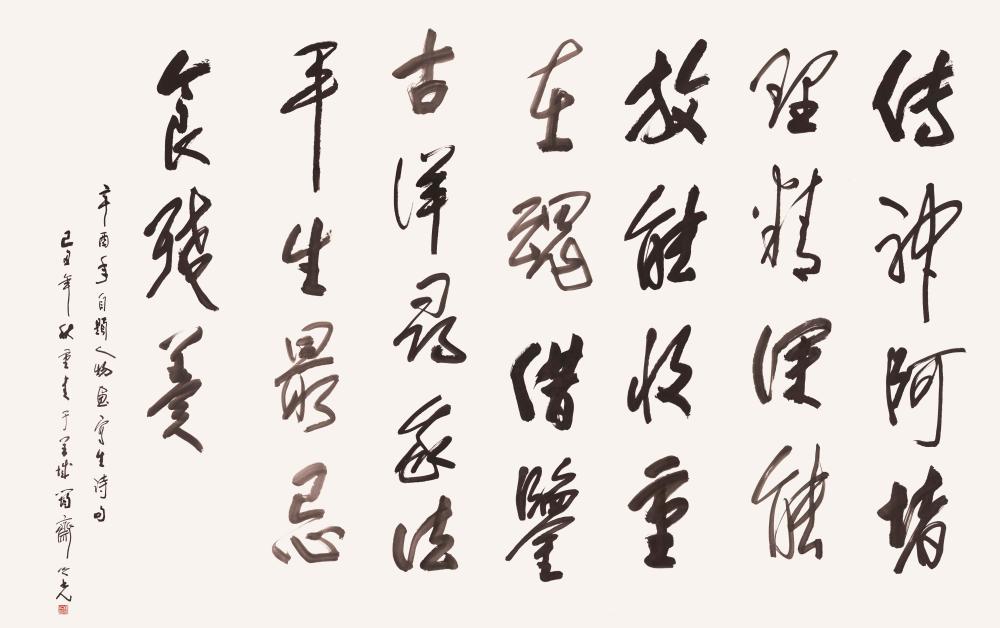 传神阿堵
理精深能
放能收重
在魂借鉴
古洋寻我法
平生最忌
食残羹
辛酉年自题人物画写生诗句
己丑年秋重书于羊城斋